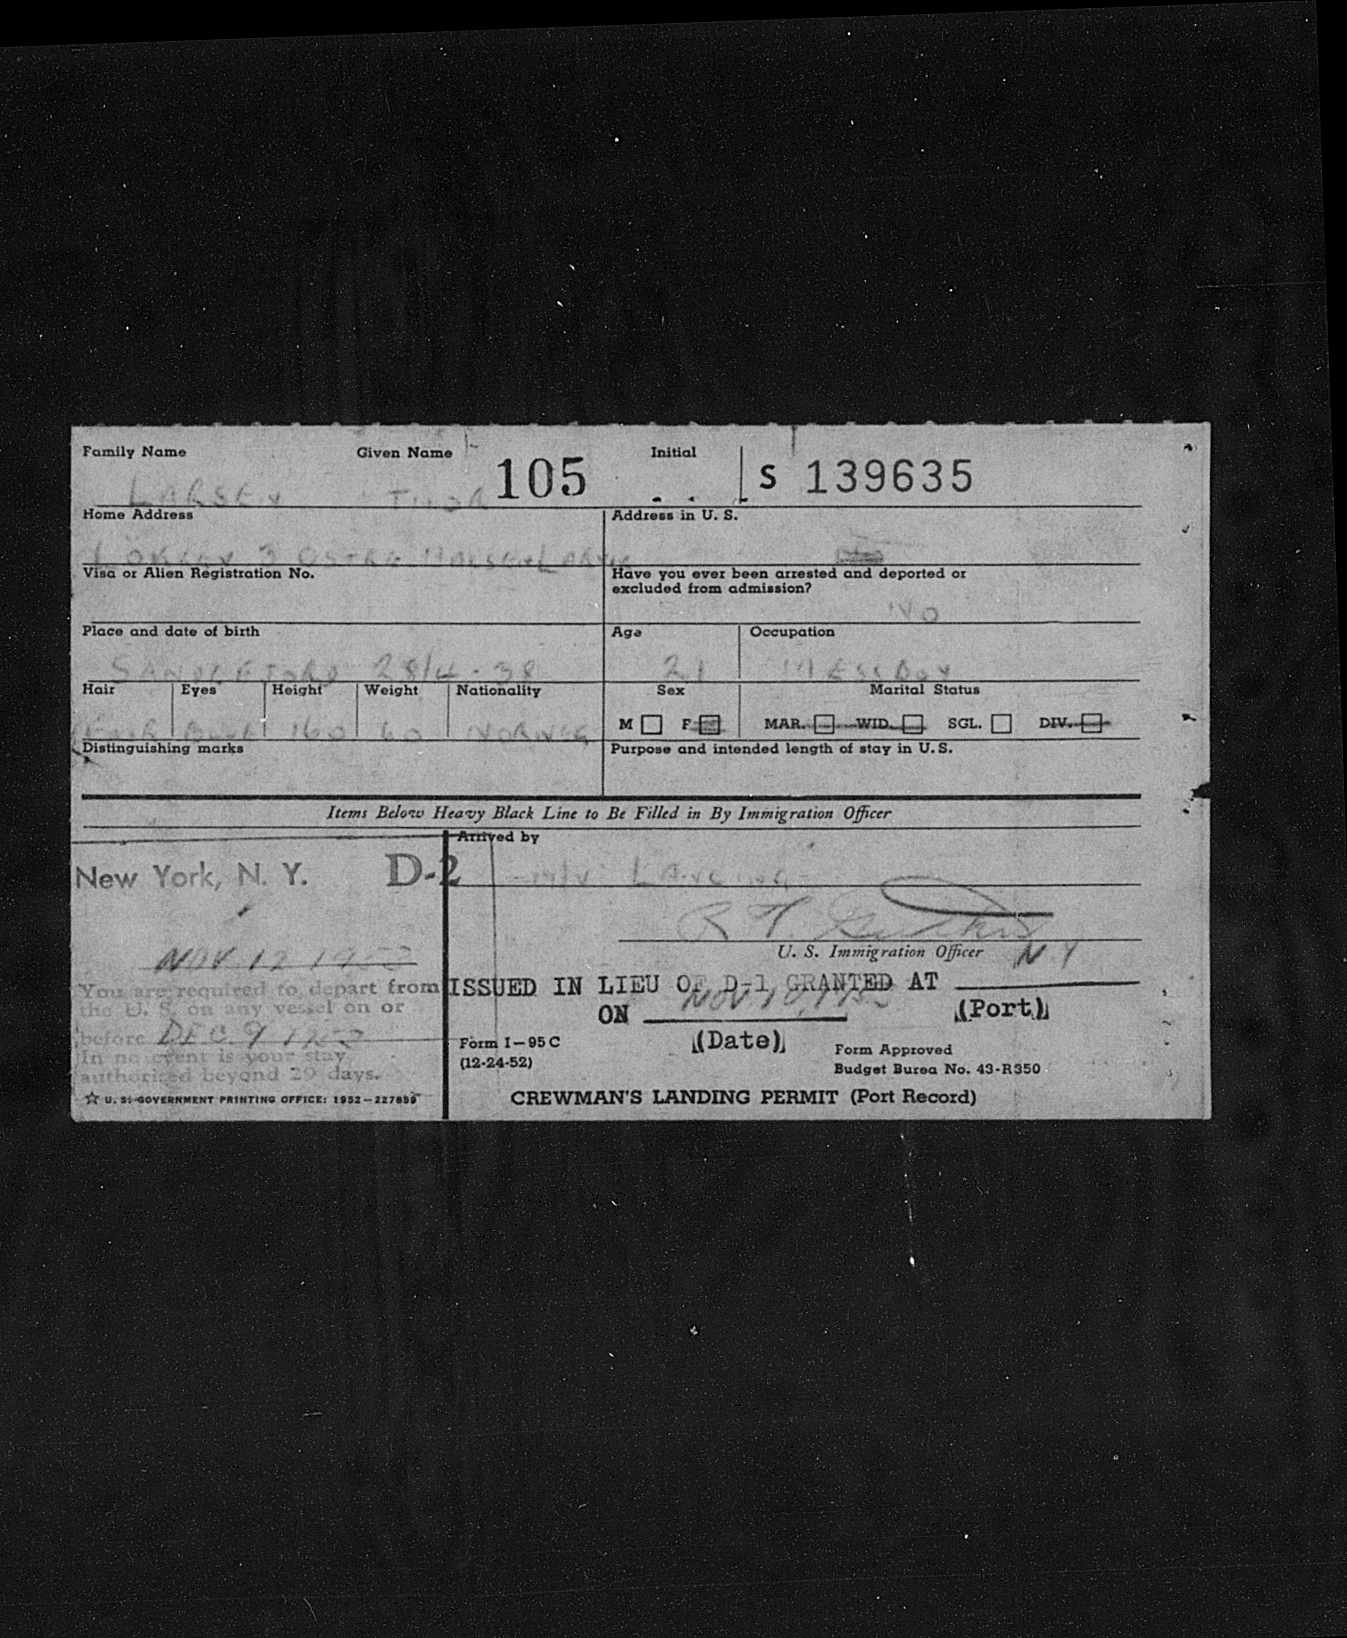 Family Name Given Name 105 Initial S 139635
LARSEN THOR
Home Address Address in U. S.
3 OSTRE HALSEN LARVIK
Visa or Alien Registration No. Have you ever been arrested and deported or
excluded from admission?
NO
Place and date of birth Age Occupation
SANDEFJORD 28/4-38 21 MESSBOY
Hair Eyes Height Weight Nationality Sex Marital Status
M F MAR. WID. SGL. DIV.
FAIR BLUE 160 60 NORWEG
Distinguishing marks Purpose and intended length of stay in U. S.
Items Below Heavy Black Line to Be Filled in By Immigration Officer
Arrived by
New York, N. Y. D-2 M/V
R
U. S. Immigration Officer
NOV 12 N.Y
You are required to depart from ISSUED IN LIEU OF D-1 GRANTED AT
the U. S. on any vessel on or ON NOV 10, (Port)
before DEC 9 (Date)
In no event is your stay Form I-95 C Form Approved
authorized beyond 29 days. (12-24-52) Budget Burea No. 43-R350
☆ U. S. GOVERNMENT PRINTING OFFICE: 1952-227859 CREWMAN'S LANDING PERMIT (Port Record)